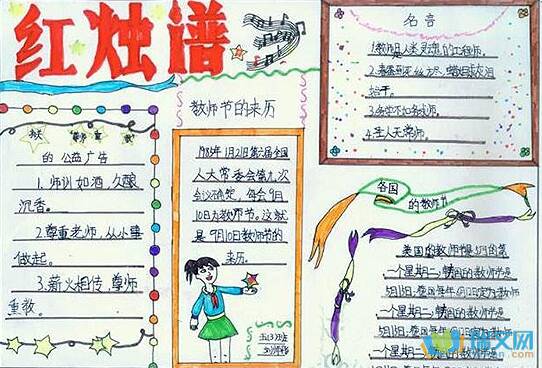 红烛谱
教师节的来历
1985年1月21日第六届全国
人大常委会第九次
会议确定，每会9月
10日为教师节。这就
是9月10日教师节的
来历。
的公益广告
1.师训如酒，久酿
沉香。
2.尊重老师，从小事
做起。
3.薪火相传，尊师
重教。
名言
1.教师是人类灵魂的工程师。
2.春蚕到死丝方尽，蜡炬成灰泪
始干。
3.务学不如务求师。
4.圣人无常师。
各国
的教师节
美国的教师节是5月的第
一个星期二，韩国的教师节是
5月15日，泰国每年
一个星期二，韩国的教师节是
5月15日，泰国每年
一个星期二
语文网